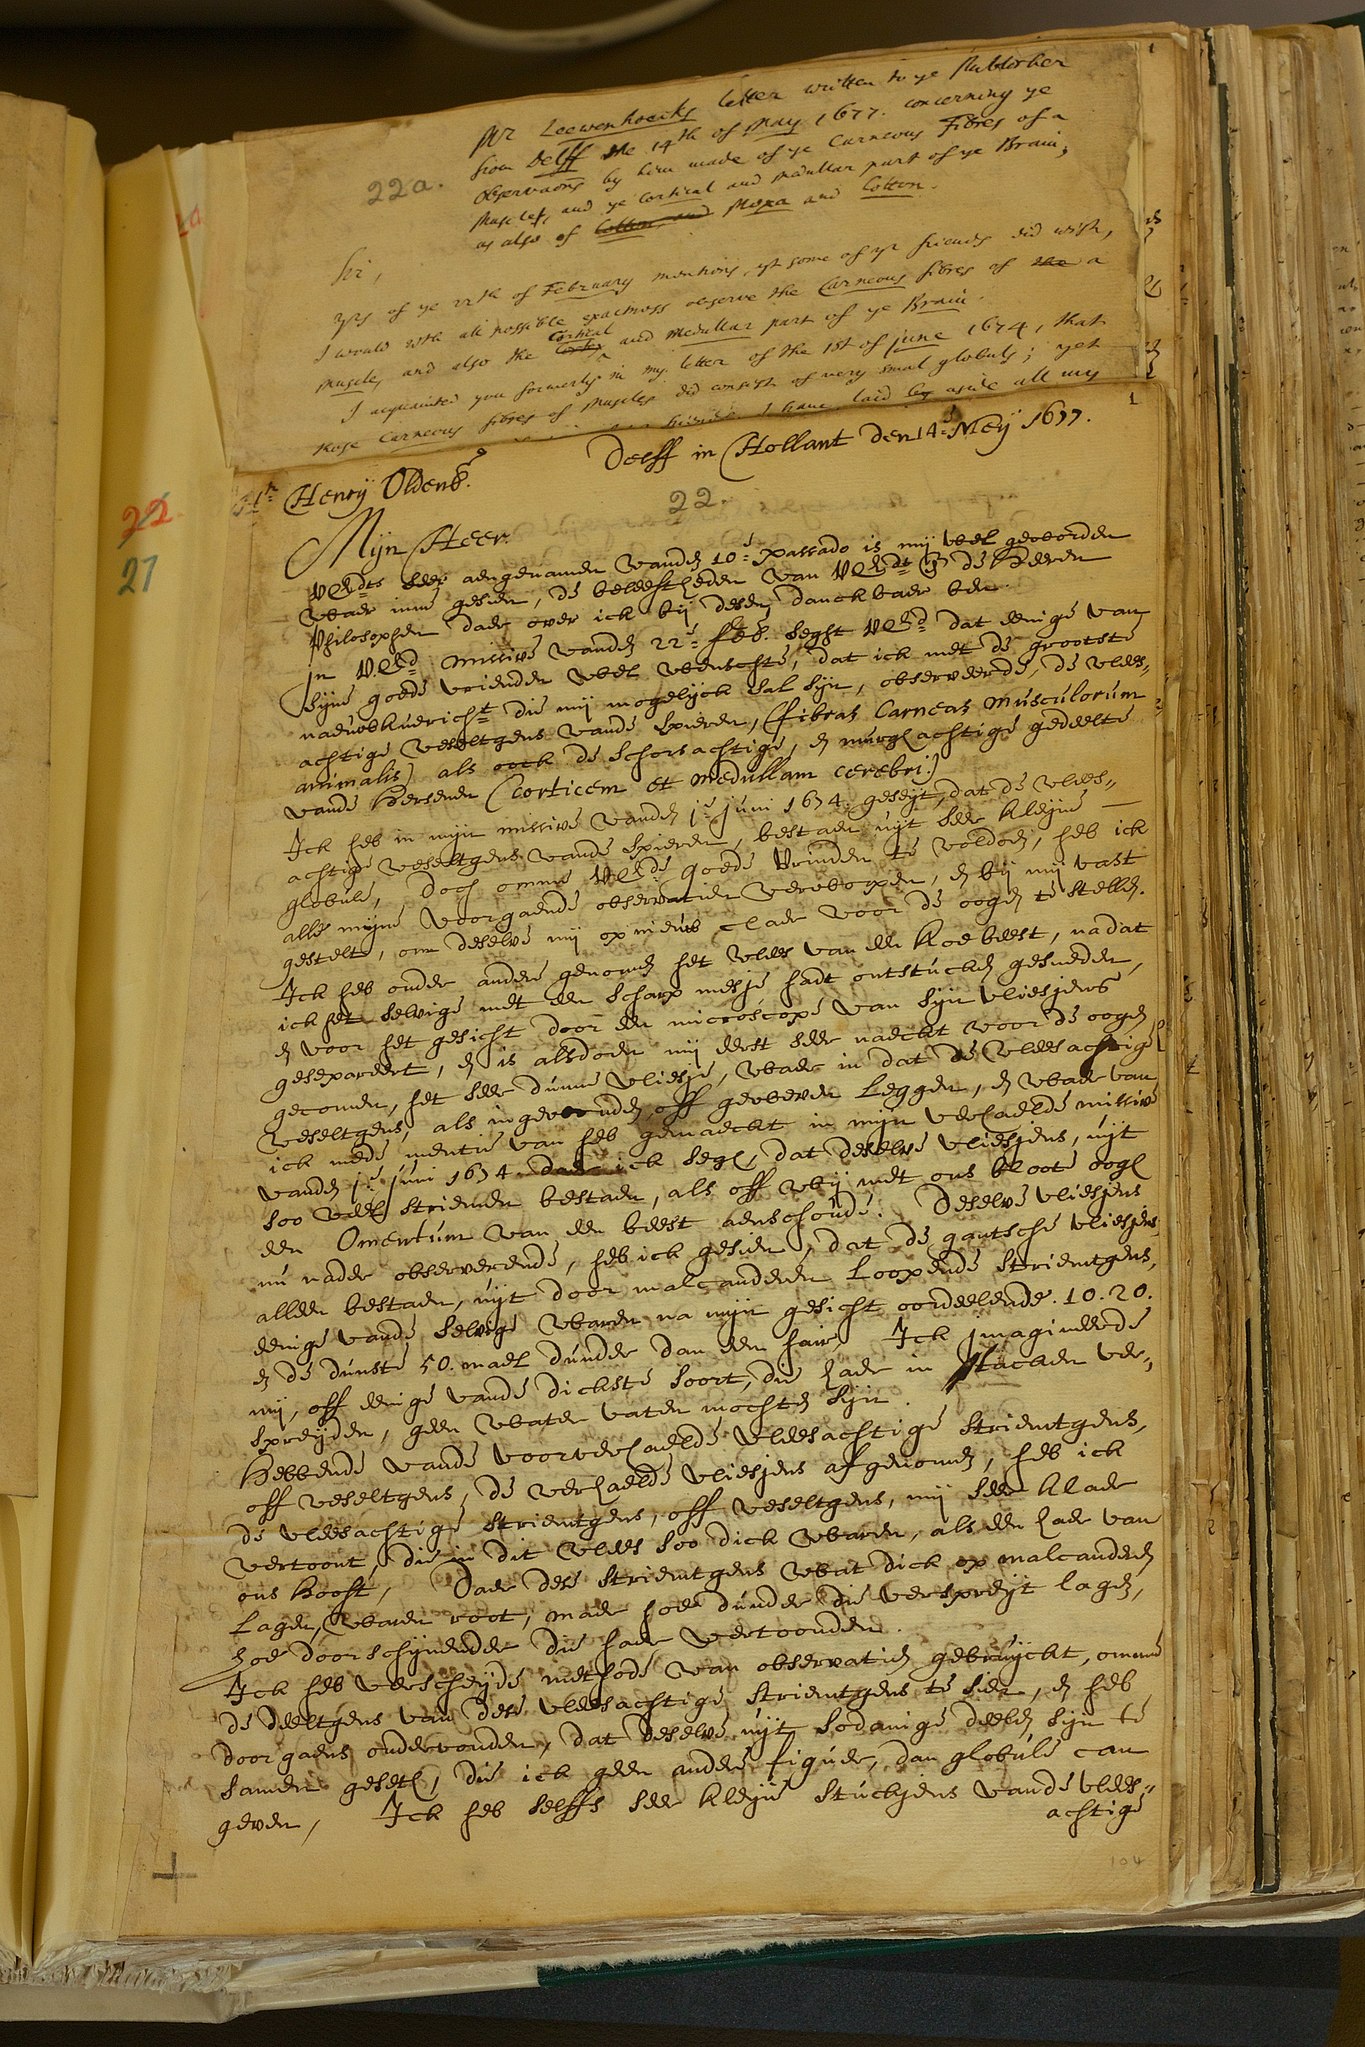 Mr Leewenhoecks letter written to ye Publisher
from Delff the 14th of May 1677. concerning ye
Observaons by him made of ye Carneous Fibres of a
Muscle, and ye Cortical and Medullar part of ye Brain;
as also of Cotton, and Moxa and Cotton.
22a.
Sir,
Yrs of ye 22th of February mentions, yt some of yr friends did wish,
I would with all possible exactness observe the Carneous fibres of the a
Muscle, and also the Cortex Cortical and Medullar part of ye Brain.
I acquainted you formerly in my letter of the 1st of June 1674, that
those Carneous fibres of Muscles did consist of very small globuls; yet
I have laid by aside all my
1
Delff in Hollant den 14e Meij 1677.
Hr Henrij Oldenb.
22.
22
21
Mijn Heer.
UEdts seer aengenamen vanden 10e passado is mij wel geworden
waer inne gesien, de beleeftheden van UEdt en de Heeren
Philosophen daer over ick bij desen danckbaer ben.
In UEd missive vanden 22e feb. seght UEd dat eenige van
sijne goede vrienden wel wenschte, dat ick met de grootste
naeuwkuericht die mij mogelijck sal sijn, observeerde, de vlees-
achtige veseltgens vande spieren, (fibras Carneas musculorum
animalis) als oock de schorsachtige, en murghachtige gedeelte
vande hersenen (corticem et medullam cerebri.)
Ick heb in mijn missive vanden 1e Juni 1674. geseijt, dat de vlees-
achtige veseltgens vande spieren, bestaen uijt seer kleijne
globule, doch omme UEde goede vrinden te voldoen, heb ick
alle mijne voorgaende observatien verworpen, en bij mij vast
gestelt, om deselve mij op nieuw claer voor de oogen te stellen.
Ick heb onder andere genomen het vlees van een koebeest, nadat
ick het selvige met een scharp mesje hadt ontstucken gesneden,
en voor het gesicht door een microscope van sijn vliesjens
gesepareert, en is alsdoen mij eerst seer naeckt voor de oogen
gecomen, het seer dunne vliesje, waer in dat de vleesachtige
veseltgens, als ingewonden, off geweven leggen, en waer van
ick mede mentie van heb gemaeckt in mijn verhaelde missive
vanden 1e Juni 1674. daer ick segh, dat deselve vliesjens, uijt
soo veel striemen bestaen, als off wij met ons bloote oogh
een Omentum van een beest aenschoude. Deselve vliesjens
nu nader observerende, heb ick gesien, dat de gantsche vliesjens
alleen bestaen, uijt door malcanderen loopende striemtgens,
eenige vande selvige waren na mijn gesicht oordeelende. 10. 20.
en de dunste 50. mael dunder dan een hair, Ick imagineerde
mij, off eenige vande dickste soort, die haer in stucken ver-
spreijden, geen water vaten mochten sijn.
Hebbende vande voorverhaelde vleesachtige striemtgens,
off veseltgens, de verhaelde vliesjens afgenomen, heb ick
de vleesachtige striemtgens, off veseltgens, mij seer klaer
vertoont, die in dit vlees soo dick waren, als een haer van
ons hooft, Daer dese striemtgens wat dick op malcanderen
lagen, waren root, maer hoe dunder die verspreijt lagen,
hoe doorschijnender die haer vertoonden.
Ick heb verscheijde methode van observatien gebruijckt, omme
de deeltgens van dese vleesachtige striemtgens te sien, en heb
doorgaens ondervonden, dat deselve uijt sodanige deelen sijn te
samen geseth, die ick geen andere figuer, dan globule can
geven, Ick heb selffs seer kleijne stuckjens vande vlees-
achtige
104